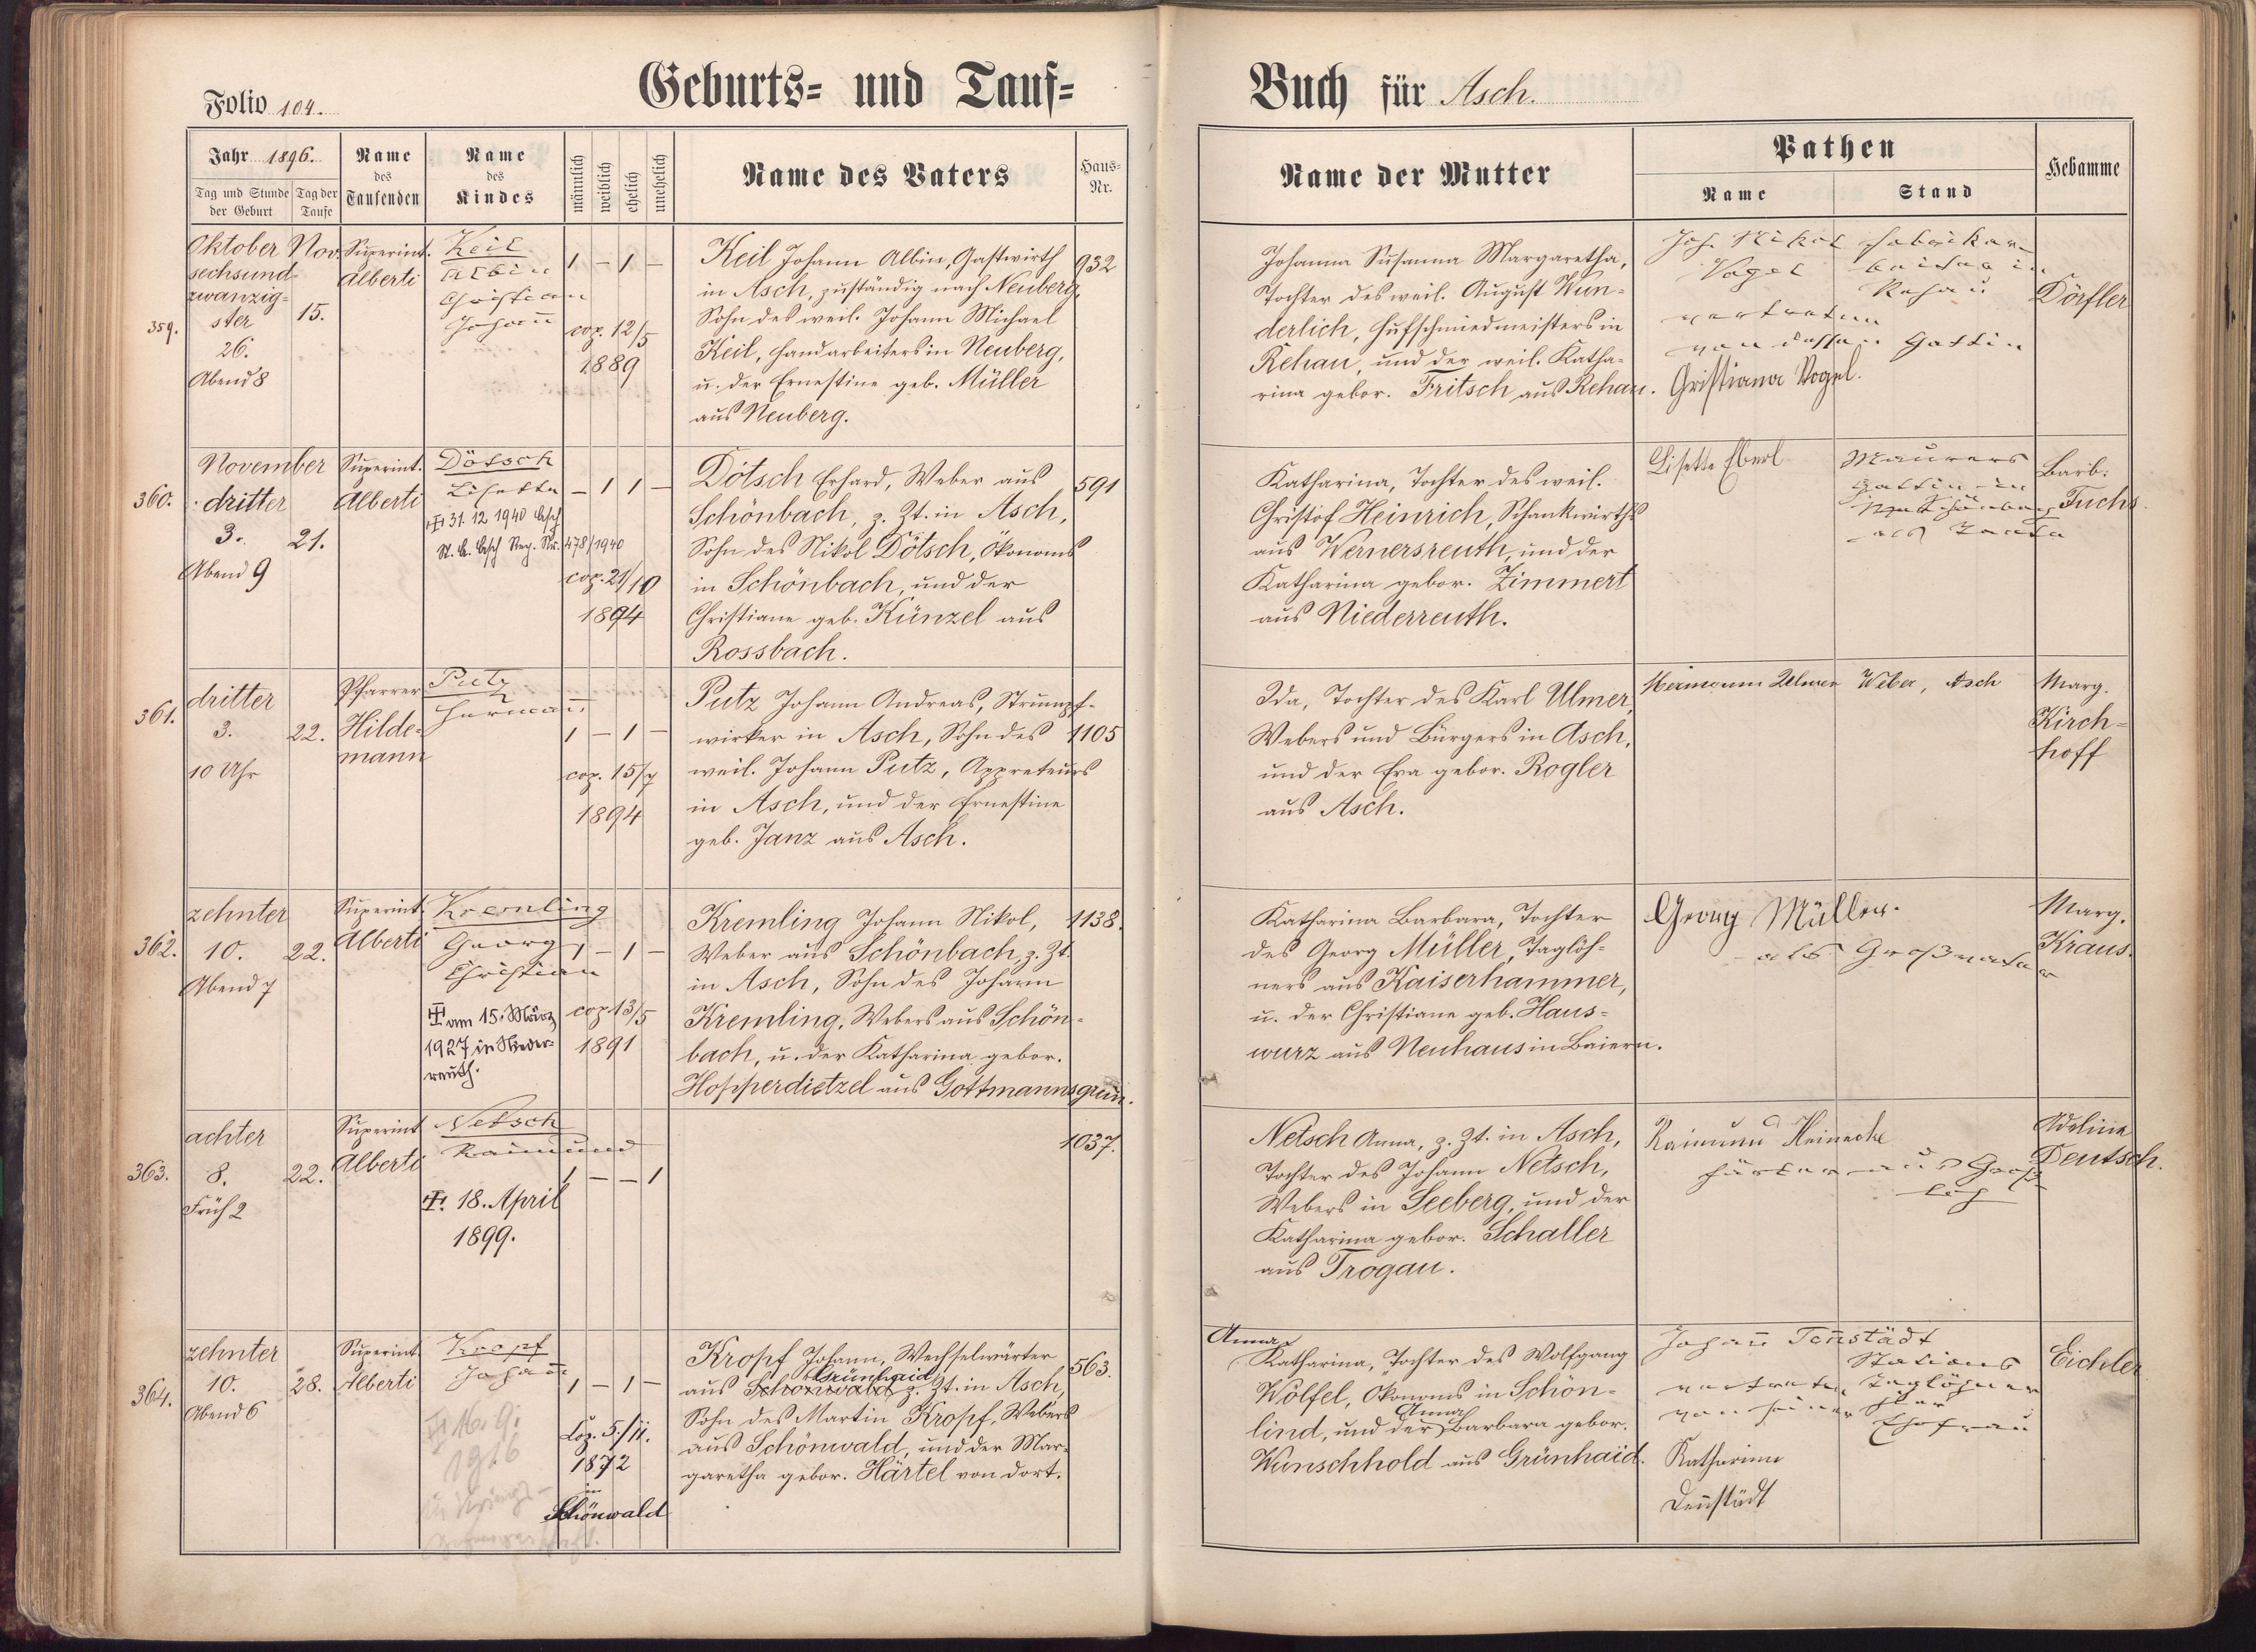 Folio 104.
Geburts- und Tauf-
Jahr 1896.
Tag und Stunde der Geburt
Tag der Taufe
Name des Taufenden
Name des Kindes
männlich
weiblich
ehelich
unehelich
Name des Vaters
Haus-Nr.
Buch für Asch.
Name der Mutter
Pathen
Name
Stand
Hebamme
359.
Oktober
sechsund-
zwanzig-
ster
26.
Abend 8
Nov.
15.
Superint.
Alberti
Keil
Albin
Christian
Johann
1 – 1 –
cop. 12/5
1889
Keil Johann Albin, Gastwirth
in Asch, zuständig nach Neuberg,
Sohn des weil. Johann Michael
Keil, Handarbeiters in Neuberg,
u. der Ernestine geb. Müller
aus Neuberg.
932
Johanna Susanna Margaretha,
Tochter des weil. August Wun-
derlich, Hufschmiedmeisters in
Rehau, und der weil. Katha-
rina gebor. Fritsch aus Rehau.
Joh. Nikol
Vogel
Rehau
vertreten
von dessen Gattin
Christiana Vogel.
Dörfler
360.
November
dritter
3.
Abend 9
21.
Superint.
Alberti
Dötsch
Lisetta
31. 12 1940 Asch
St. A. Asch Reg. Nr. 478/1940
– 1 1 –
cop. 21/10
1894
Dötsch Erhard, Weber aus
Schönbach, z. Zt. in Asch,
Sohn des Nikol Dötsch, Ökonoms
in Schönbach, und der
Christiane geb. Künzel aus
Rossbach.
591
Katharina, Tochter des weil.
Christof Heinrich, Schankwirths
aus Wernersreuth, und der
Katharina gebor. Zimmert
aus Niederreuth.
Lisette Eberl
Maurers
Gattin in
als Tante
Barb.
Fuchs.
361.
dritter
3.
10 Uhr
22.
Pfarrer
Hilde-
mann
Putz
Hermann
1 – 1 –
cop. 15/7
1894
Putz Johann Andreas, Strumpf-
wirker in Asch, Sohn des
weil. Johann Putz, Appreteurs
in Asch, und der Ernestine
geb. Janz aus Asch.
1105
Ida, Tochter des Karl Ulmer,
Webers und Bürgers in Asch,
und der Eva gebor. Rogler
aus Asch.
Hermann Ulmer
Weber, Asch
Marg.
Kirch-
hoff
362.
zehnter
10.
Abend 7
22.
Superint.
Alberti
Kremling
Georg
Christian
am 15. März
1927 in Nieder-
reuth.
1 – 1 –
cop 13/5
1891
Kremling Johann Nikol,
Weber aus Schönbach, z. Zt.
in Asch, Sohn des Johann
Kremling, Webers aus Schön-
bach, u. der Katharina gebor.
Hopperdietzel aus Gottmannsgrün.
1138.
Katharina Barbara, Tochter
des Georg Müller, Taglöh-
ners aus Kaiserhammer,
u. der Christiane geb. Haus-
wurz aus Neuhaus in Baiern.
Georg Müller.
als Großvater
Marg.
Kraus.
363.
achter
8.
Früh 2
22.
Superint
Alberti
Netsch
Raimund
18. April
1899.
1 – – 1
1037.
Netsch Anna, z. Zt. in Asch,
Tochter des Johann Netsch,
Webers in Seeberg, und der
Katharina gebor. Schaller
aus Trogau.
Raimund Heinecke
Färber aus
Adeline
Deutsch.
364.
zehnter
10.
Abend 6
28.
Superint
Alberti
Kropf
Johann
16. 9.
1916
1 – 1 –
Cop. 5./11.
1872
in
Schönwald
Kropf Johann, Wechselwärter
Grünhaid
aus Schönwald z. Zt. in Asch,
Sohn des Martin Kropf, Webers
aus Schönwald, und der Mar-
garetha gebor. Härtel von dort.
563.
Anna
Katharina, Tochter des Wolfgang
Wölfel, Ökonoms in Schön-
Anna
lind, und der Barbara gebor.
Wunschhold aus Grünhaid.
Johann Tennstädt
Stations
vertreten Taglöhner
von seiner
Ehefrau
Katharina
Eichler